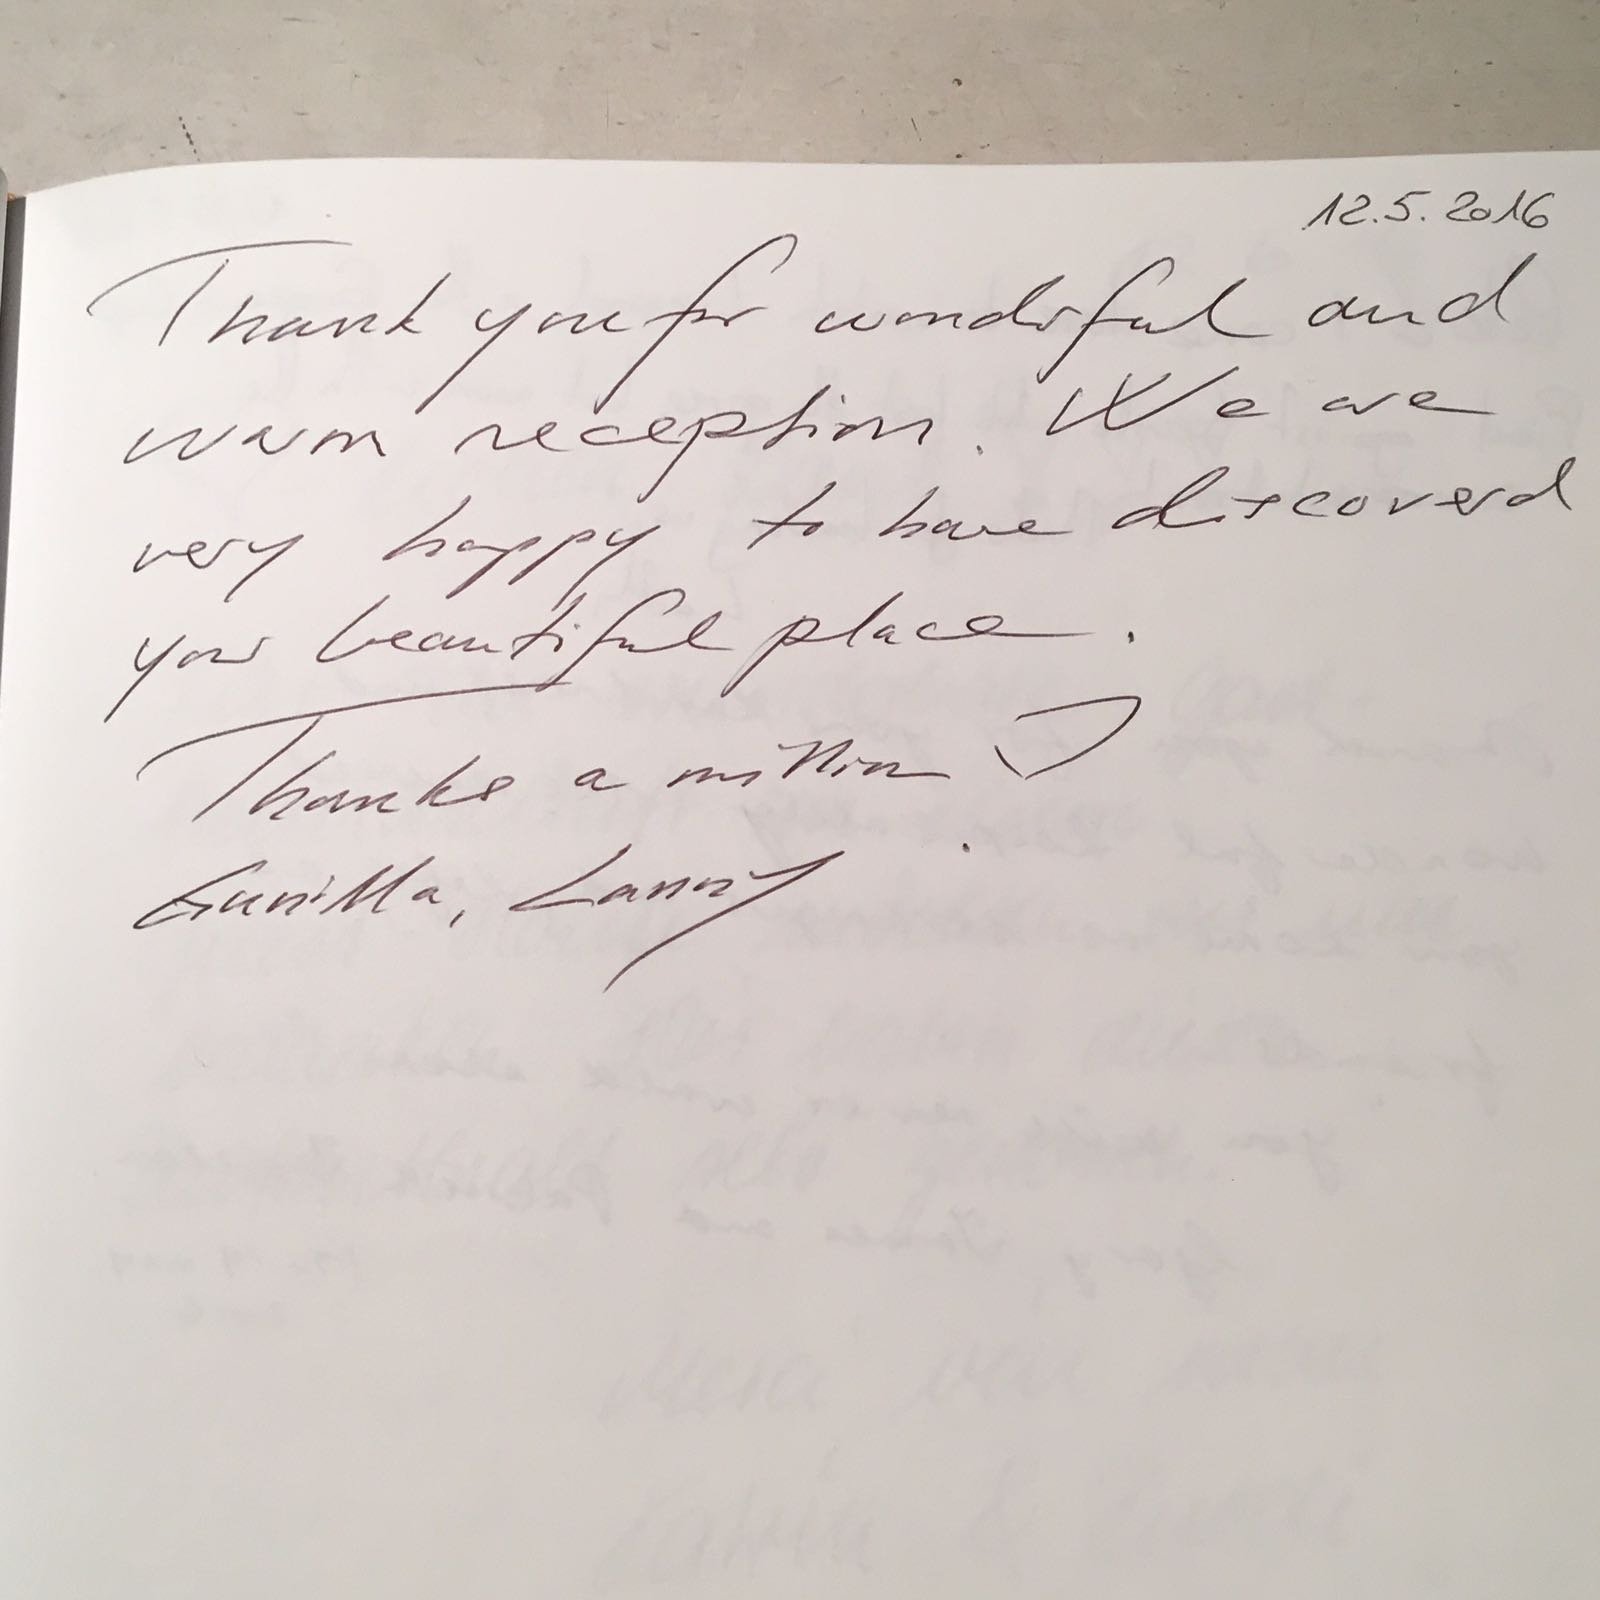 12.5.2016
Thank you for wonderful and
warm reception. We are
very happy to have discoverd
your beautiful place.
Thanks a million ♡
Gunilla, Lanny